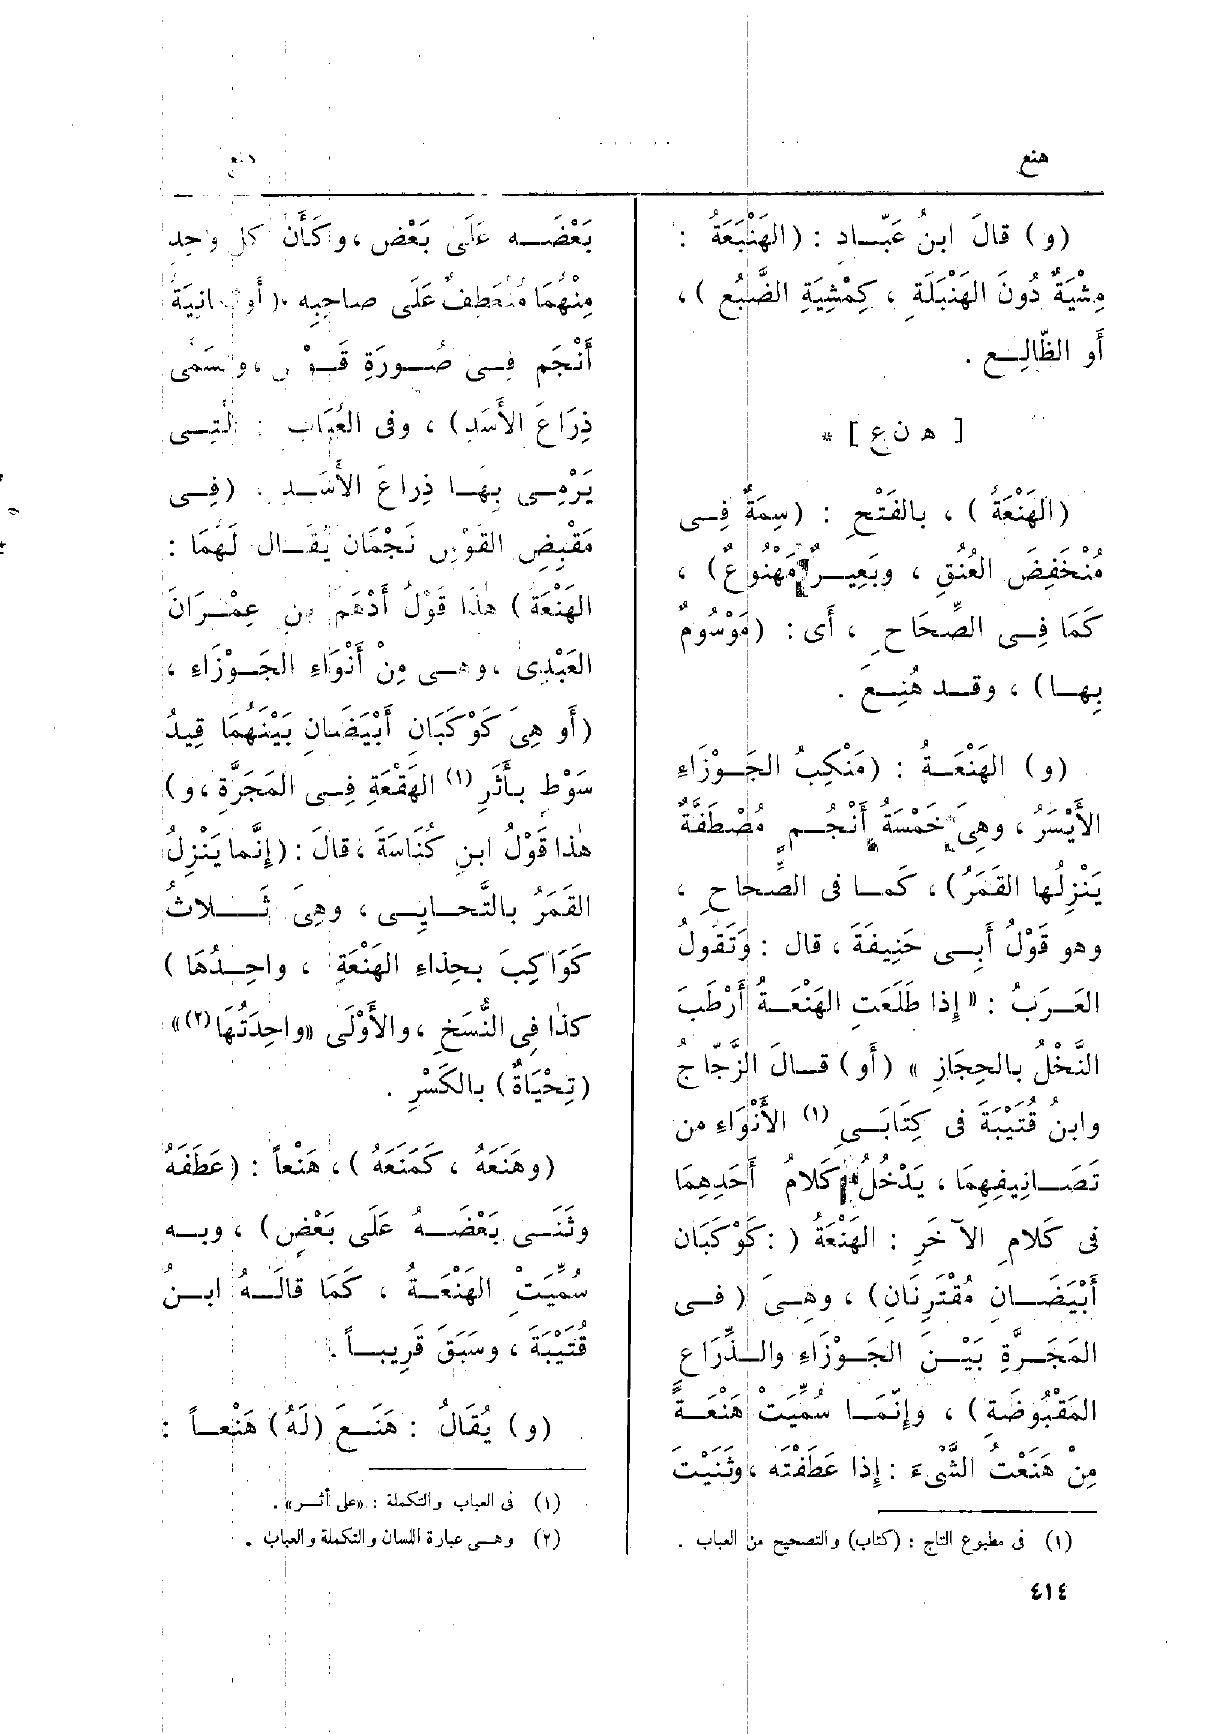 هنع
هنع
(و) قالَ ابنُ عَبّــاد : (الهَنْبَعَةُ :
مِشْيَةٌ دُونَ الهَنْبَلَةِ ، كَمِشْيَةِ الضَّبُعِ) ،
أو الظّالِــعِ .
[ ه ن ع ] *
(الهَنْعَةُ) ، بالفَتْحِ : (سِمَةٌ فِــى
مُنْخَفِضِ العُنُقِ ، وبَعِيــرٌ مَهْنُوعٌ) ،
كَمَا فِــى الصِّحَاحِ ، أى : (مَوْسُومٌ
بِهــا) ، وقــد هُنِــعَ .
(و) الهَنْعَــةُ : (مَنْكِبُ الجَــوْزَاءِ
الأَيْسَرُ ، وهِىَ خَمْسَةُ أَنْجُــمٍ مُصْطَفَّةٌ
يَنْزِلُها القَمَرُ) ، كمــا فى الصِّحاحِ ،
وهو قَوْلُ أَبِــى حَنِيفَةَ ، قال : وَتَقُولُ
العَــرَبُ : « إِذا طَلَعَتِ الهَنْعَــةُ أَرْطَبَ
النَّخْلُ بالحِجَازِ » (أَو) قــالَ الزَّجّاجُ
وابنُ قُتَيْبَةَ فى كِتَابَــىِ (١) الأَنْوَاءِ من
تَصَــانِيفِهِمَا ، يَدْخُلُ كَلامُ أَحَدِهِمَا
فى كَلامِ الآخَرِ : الهَنْعَةُ ( : كَوْكَبَان
أَبْيَضَــانِ مُقْتَرِنَانِ) ، وهــىَ (فــى
المَجَــرَّةِ بَيْــنَ الجَــوْزَاءِ والــذِّرَاعِ
المَقْبُوضَةِ) ، وإِنَّمَــا سُمِّيَتْ هَنْعَــةً
مِنْ هَنَعْتُ الشَّىْءَ : إِذا عَطَفْتَه ، وثَنَيْتَ
(١) فى مطبوع التاج : (كتاب) والتصحيح من العباب .
بَعْضَــه عَلَى بَعْضٍ ، وكَأَنَّ كلّ واحِدٍ
مِنْهُمَا مُنْعَطِفٌ عَلَى صاحِبِه . (أَو ثمانِيَةُ
أَنْجُمٍ فِــى صُــورَةِ قَــوْسٍ ، وتُسَمَّى
ذِرَاعَ الأَسَدِ) ، وفى العُبَابِ : الَّتِــى
يَرْمِــى بِهــا ذِراعَ الأَسَــدِ . (فِــى
مَقْبِضِ القَوْسِ نَجْمَانِ يُقَــال لَهُمَا :
الهَنْعَة) هٰذَا قَوْلُ أَدْهَمَ بنِ عِمْــرَانَ
العَبْدِىّ ، وهــى مِنْ أَنْوَاءِ الجَــوْزَاءِ ،
(أَو هِىَ كَوْكَبَانِ أَبْيَضَانِ بَيْنَهُمَا قِيدُ
سَوْطٍ بأَثَرِ (١) الهَقْعَةِ فِــى المَجَرَّة ، و)
هٰذا قَوْلُ ابنِ كُنَاسَةَ ، قالَ : (إِنَّما يَنْزِلُ
القَمَرُ بالتَّحــايِــى ، وهِىَ ثَــــلاثُ
كَوَاكِبَ بحِذاءِ الهَنْعَةِ ، واحِــدُهَا)
كذٰا فِى النُّسَخِ ، والأَوْلَى «واحِدَتُهَا (٢)»
(تِحْيَاةٌ) بالكَسْرِ .
(وهَنَعَهُ ، كمَنَعَهُ) ، هَنْعاً : (عَطَفَهُ
وثَنَــى بَعْضَــهُ عَلَى بَعْضٍ) ، وبــه
سُمِّيَتِ الهَنْعَــةُ ، كَمَا قالَــهُ ابــنُ
قُتَيْبَةَ ، وسَبَقَ قَرِيبــاً .
(و) يُقَالُ : هَنَــعَ (لَهُ) هَنْعــاً :
(١) فى العباب والتكملة : «على أثــر» .
(٢) وهــى عبارة اللسان والتكملة والعباب .
٤١٤